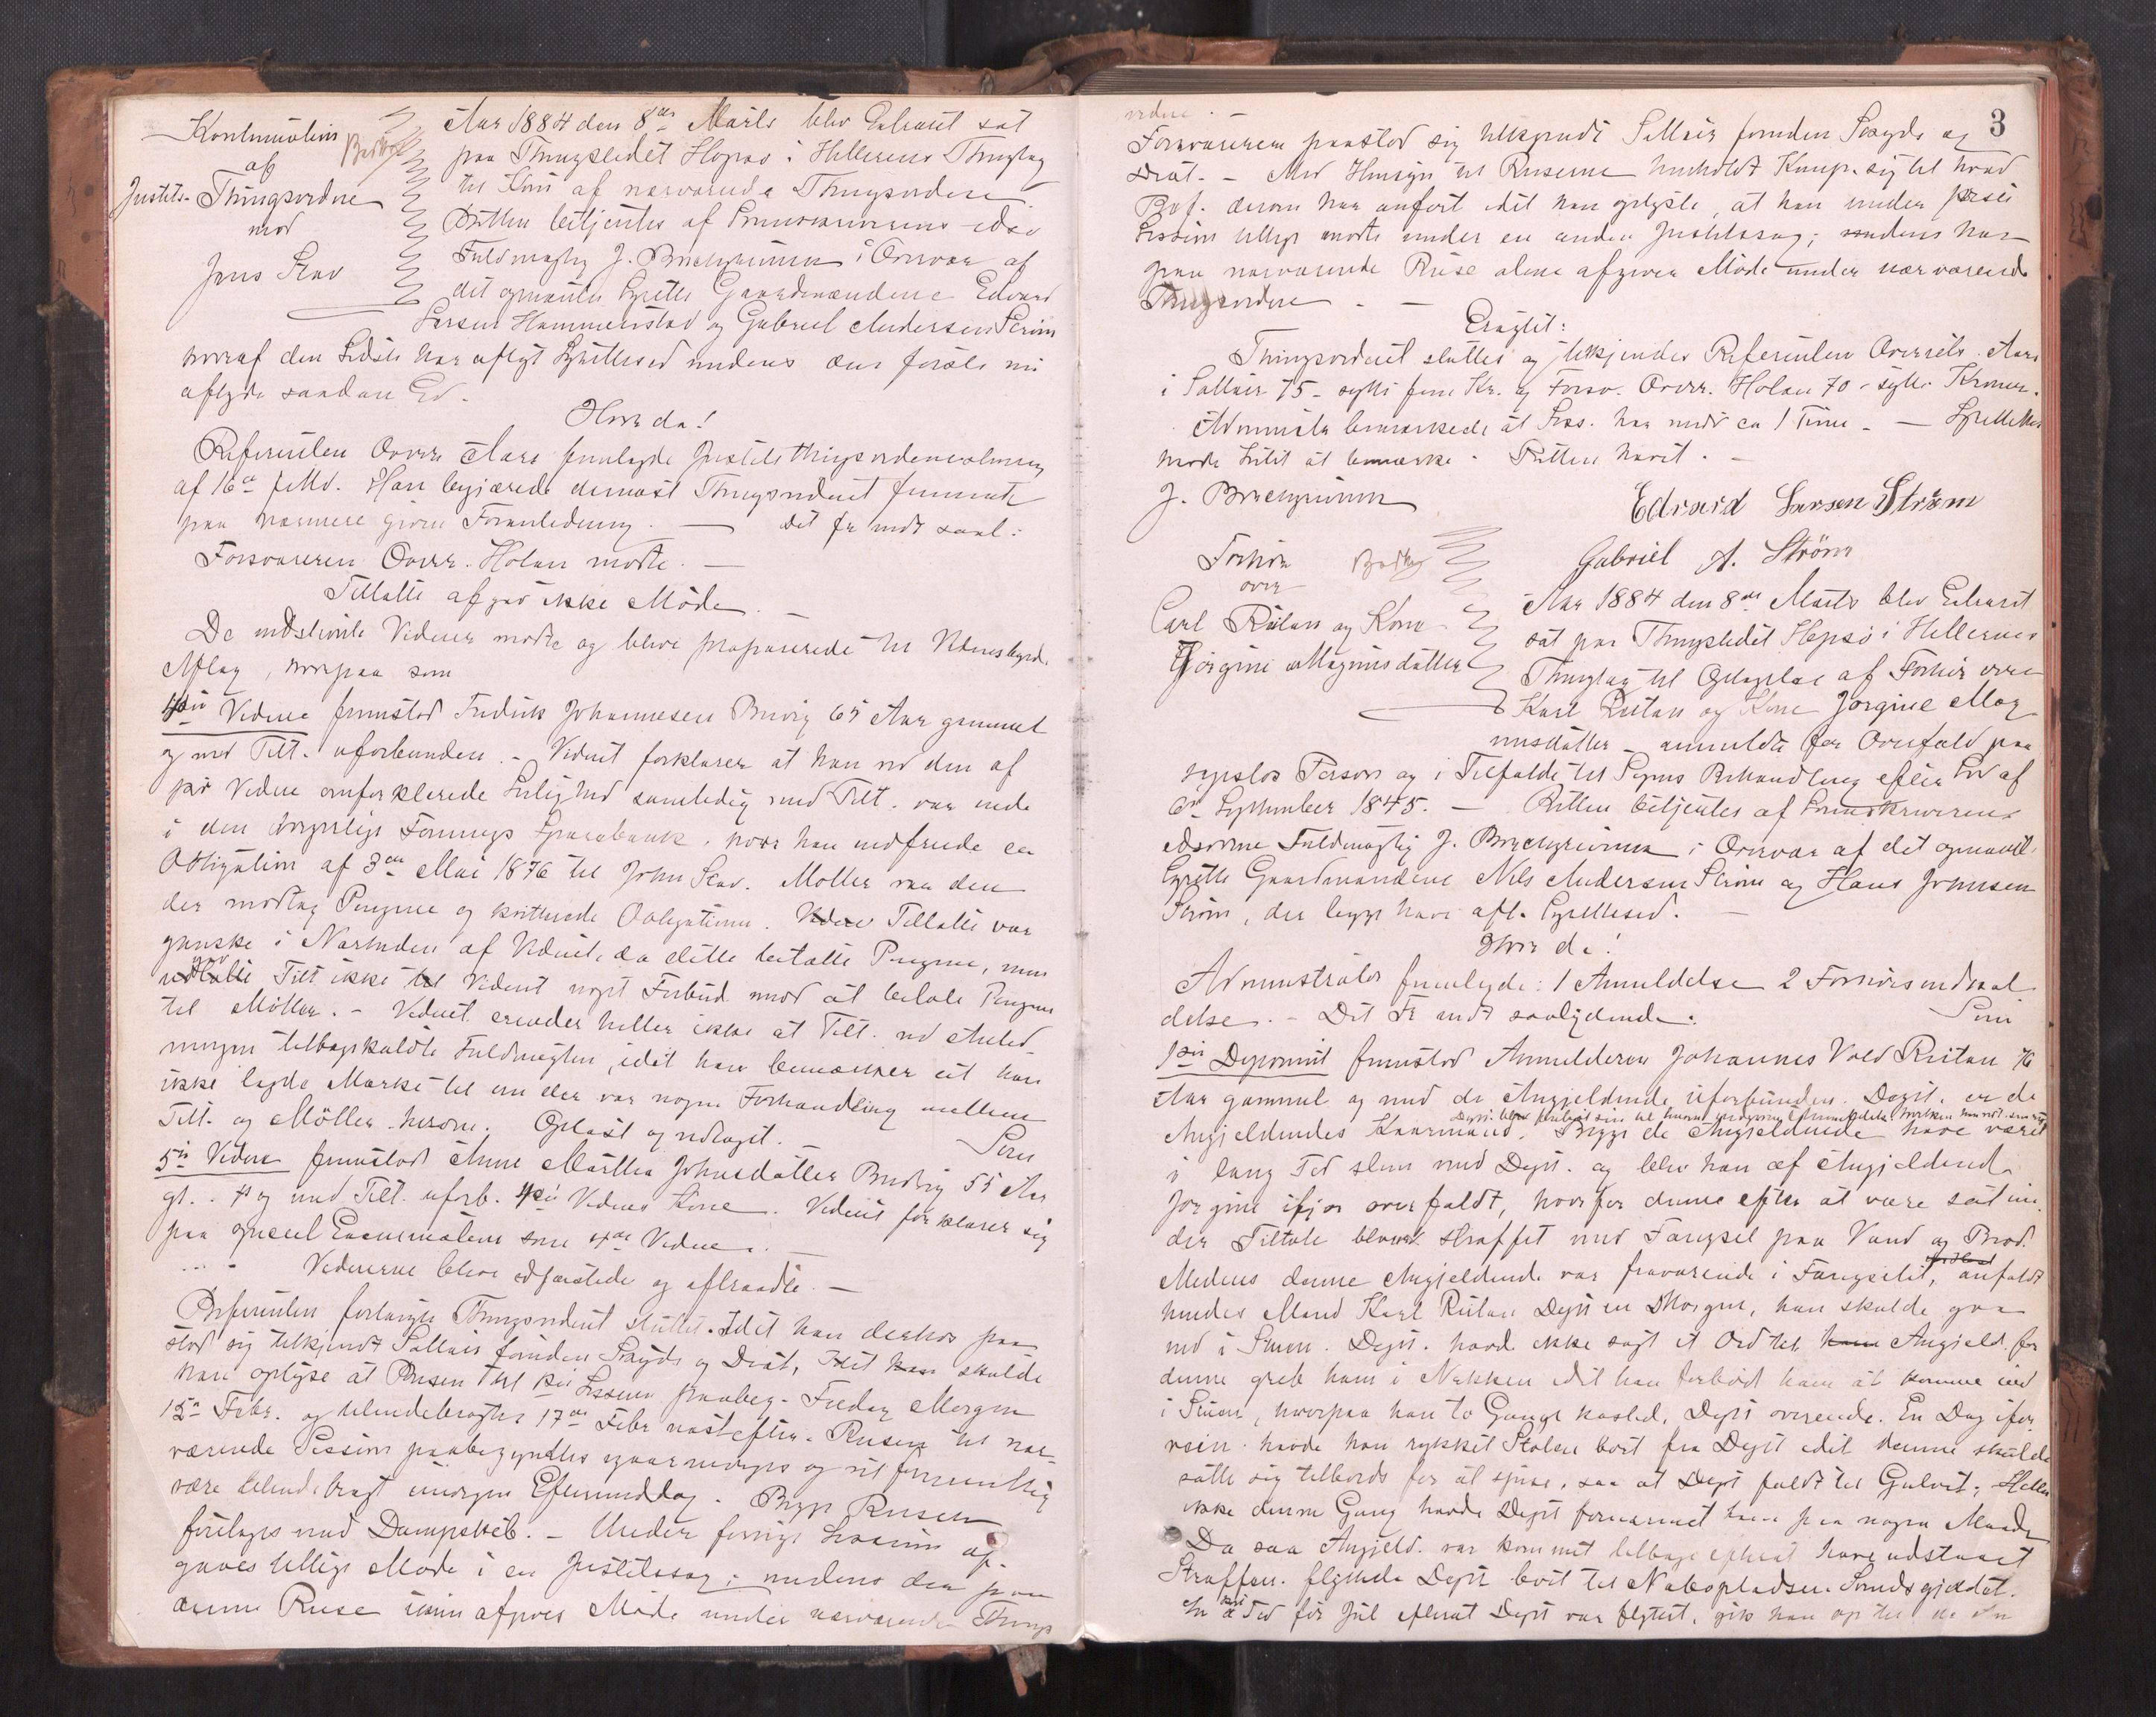 Kontinuation
af
Justits- Thingsvidne
mod
Jens Stav
Aar 1884 den 8de Marts blev Extraret sat
paa Thingstedet Hopsø i Hitterens Thinglag
til Kont. af nærværende Thingsvidne
Retten betjentes af Sorenskriverens edsv.
Fuldmægtig J. Brechgrimm i Overvær af
det opnævnte Lagrette Gaardmændene Edvard
Larsen Hammerstad og Gabriel Andersen Strøm
hvoraf den Sidste har aflagt Lagretteed medens den første nu
aflagde saadan Ed.
Hvor da!
Referenten Overr. Aars fremlagde Justitsthingsvidneudtagning
af 16de f. Md. Han begjærede dernæst Thingsvidnet fremmet
paa nærmere given Foranledning. — Det fr. indt. saal:
Forsvareren Overr. Holan mødte. —
Tiltalte afgav ikke Møde. —
De indstevnte Vidner mødte og bleve præparerede til Vidnesbyrds
Aflæg, hvorpaa som
4de Vidne fremstod Fredrik Johannesen Burøy 65 Aar gammel
og med Tilt. uforbunden. – Vidnet forklarer at han ved den af
3die Vidne omforklarede Leilighed samtidig med Tilt. var inde
i den Sparebank, hvor han indfriede en
Obligation af 3die Mai 1876 til John Stav. Møller var den
der modtog Pengene og kvitterede Obligationen. Tiltalte var
ganske i Nærheden af Vidnet, da dette betalte Pengene, men
gav Tilt. ikke Vidnet noget Forbud mod at betale Pengene
til Møller. – Vidnet erindrer heller ikke at Tilt. ved Anled-
ningen tilbagekaldte Fuldmagten, idet han bemærker at han
ikke lagde Mærke til om der var nogen Forhandling mellem
Tilt. og Møller herom. Oplæst og vedtaget. — Som
5te Vidne fremstod Anne Martha Johnsdatter Burøy 55 Aar
gl. og med Tilt. uforb. 4de Vidnes Kone. Vidnet forklarer sig
paa speciel Examination som 4de Vidne. —
Vidnerne bleve edfæstede og aftraadte. —
Referenten forlangte Thingsvidnet sluttet. Idet han derhos paa-
stod sig tilkjendt Sallair foruden Skyds og Diæt, skulde
han oplyse at Reisen til Session paabeg. Fredag Morgen
15de Febr. og tilendebragtes 17de Febr næstefter. Reisen til nær-
værende Session paabegyndtes igaarmorges og vil formentlig
være tilendebragt imorgen Eftermiddag. Begge Reiser
foretages med Dampskib. – Under forrige Session af-
gaves tillige Møde i en Justitssag, medens der paa
denne Reise kun afgives Møde under nærværende Things
3
vidne. –
Forsvareren paastod sig tilkjendt Sallair foruden Skyds og
Diæt. – Med Hensyn til Reiserne henholdt Komp. sig til hvad
Ref. derom har anført idet han oplyste, at han under forrige
Session tillige mødte under en anden Justitssag; medens han
paa nærværende Reise alene afgiver Møde under nærværende
Thingsvidne. —
Eragtet:
Thingsvidnet sluttes og tilkjendes Referenten Overrets. Aars
i Sallair 75 – sytti fem Kr. og Forsv. Overr. Holan 70 – sytti Kroner.
Administr. bemærkede at Sess. har medt. ca 1 Time. — Lagrettet
havde Intet at bemærke. Retten hævet. –
J. Brechgrimm
Edvard Larsen Strøm
Gabriel A. Ström
Forhør
over
Carl Reitan og Kone
Jørgine Magnusdatter
Aar 1884 den 8de Marts blev Extraret
sat paa Thingstedet Hopsø i Hitterens
Thinglag til Optagelse af Forhør over
Karl Reitan og Kone Jørgine Mag-
nusdatter – anmeldte for Overfald paa
sageslös Person og i Tilfælde til Sagens Behandling efter Lov af
6te September 1845. — Retten betjentes af Sorenskriverens
edsvorne Fuldmægtig J. Brechgrimm i Overvær af det opnævnte
Lagrette Gaardmændene Nils Andersen Strøm og Hans Johnsen
Strøm, der begge have afl. Lagretteed. –
Hvor da!
Administrator fremlagde: 1 Anmeldelse 2 Forhørsindkal-
delse. – Det Fr. indt. saalydende: Som
1ste Deponent fremstod Anmelderen Johannes Vold Reitan 76
Aar gammel og med de Angjeldende uforbunden. Depts. er de
Angjeldendes Kaarmand. Begge de Angjeldende have været
i lang Tid slem med Dept. og blev han af Angjeldende
Jørgine ifjor overfaldt, hvorfor denne efter at være sat un-
der Tiltale blev straffet med Fængsel paa Vand og Brød.
Medens denne Angjeldende var fraværende i Fængselet, anfaldt
hendes Mand Karl Reitan Dept en Morgen, han skulde gaa
ind i Stuen. Dept. havde ikke sagt et Ord til Angjeld. før
denne greb ham i Nakken idet han forbød ham at komme ind
i Stuen, hvorpaa han to Gange kasted. Dept overende. En Dag ifor-
veien havde han rykket Stolen bort fra Dept idet denne skulde
sætte sig tilbords for at spise, saa at Dept faldt til Gulvet; Heller
ikke denne Gang havde Dept fornærmet ham paa nogen Maade
Da saa Angjeld. var kommet tilbage efterat have udstaaet
Straffen flyttede Dept bort til Nabopladsen Sundsgjældet.
En Tid før Jul efterat Dept var flyttet, gik han op til de An